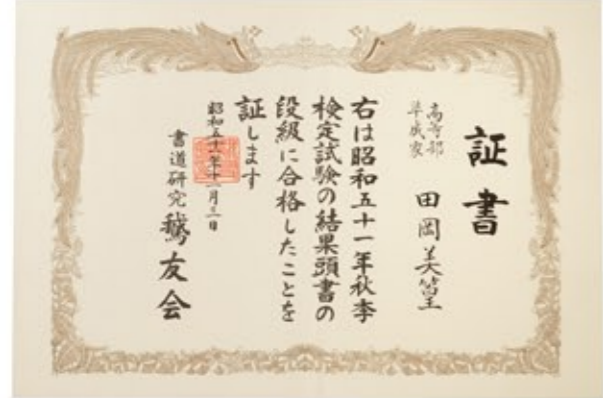 証書
高等部
準成家
田岡美笙
右は昭和五十一年秋季
検定試験の結果頭書の
段級に合格したことを
証します
昭和五十一年十一月三日
書道研究 鵞友会